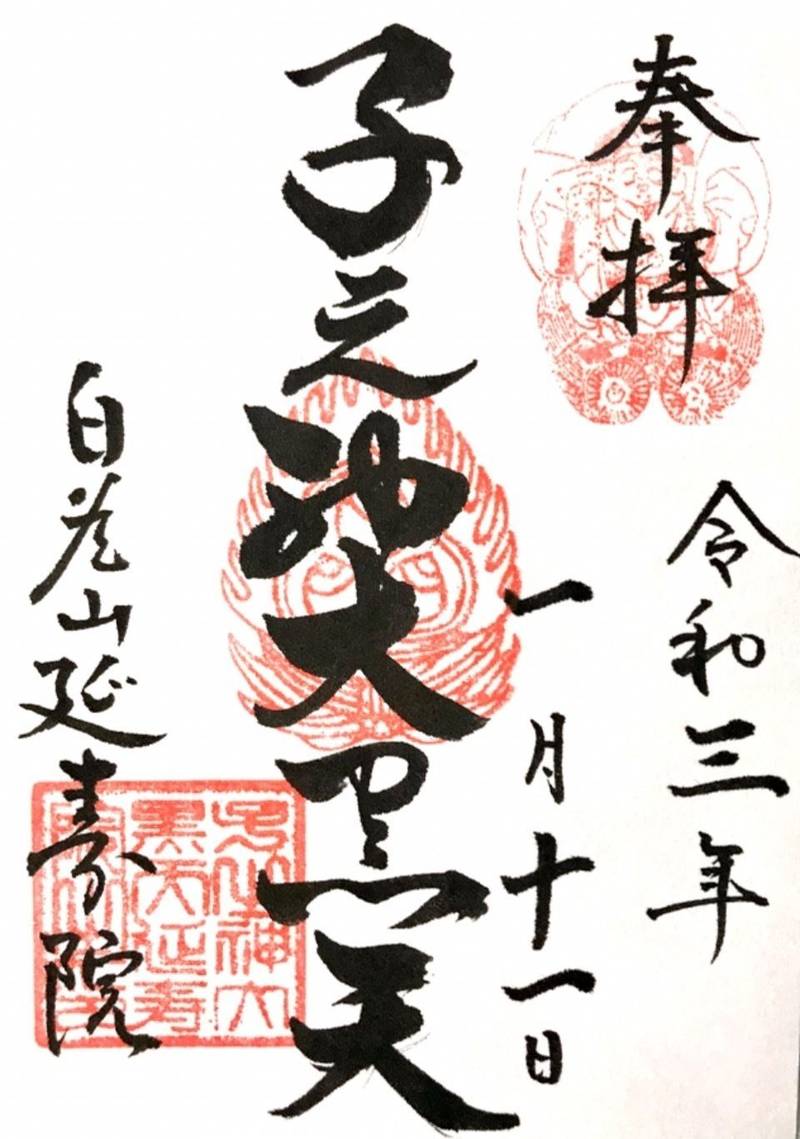 奉拝
令和三年
一月十一日
子之神大黒天
白花山延寿院
之神大
黒天延寿